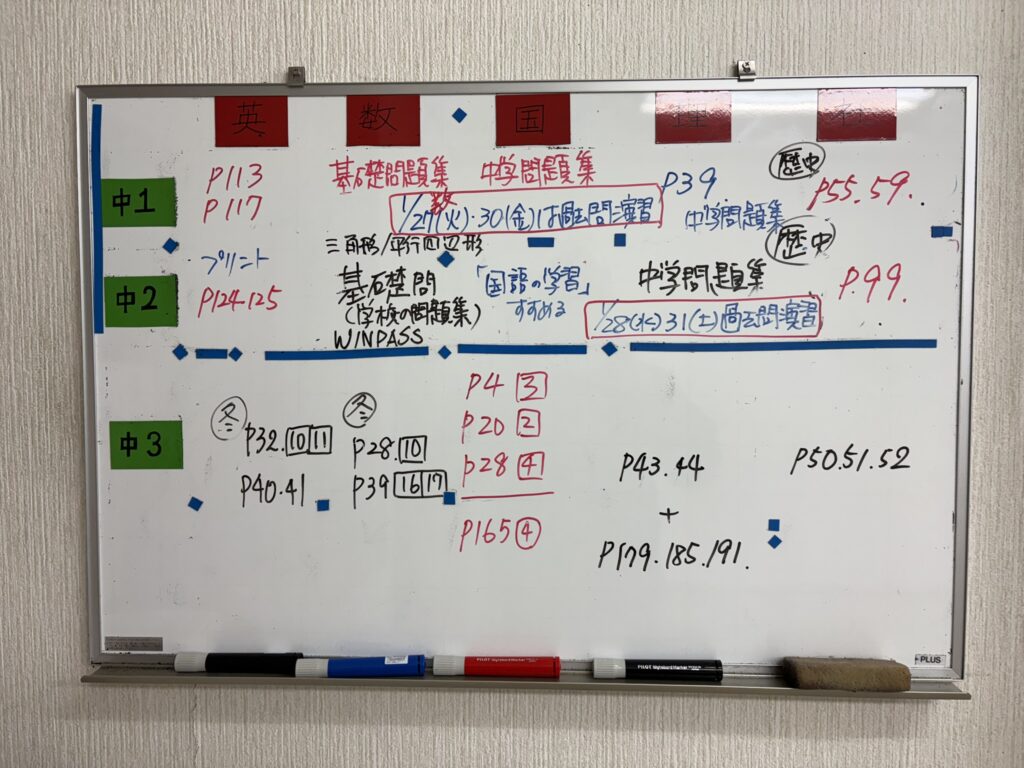 英 数 国 理 社
中1
P113
P117
基礎問題集
中学問題集
数
1/27(火)・30(金)は過去問演習
P39
中学問題集
歴史
P55.59.
中2
プリント
P124-125
三角形/平行四辺形
基礎問
(学校の問題集)
WINPASS
「国語の学習」
すすめる
中学問題集
1/28(水)31(土)過去問演習
歴史
P.99.
中3
冬
P32.10 11
P40.41
冬
P28.10
P39 16 17
P4 3
P20 2
P28 4
P165 ④
P43.44
+
P179.185.191.
P50.51.52
PILOT
PILOT
PILOT
PLUS